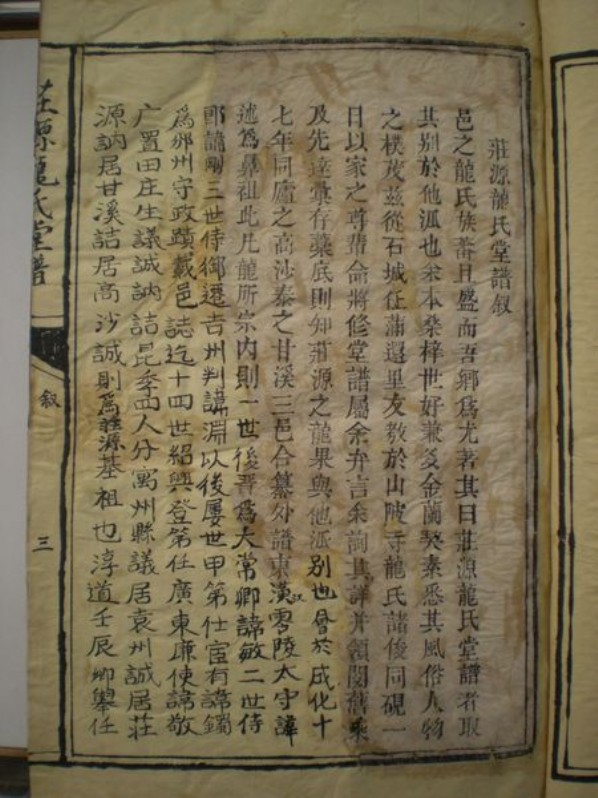 莊源龍氏堂譜叙
邑之龍氏族蕃且盛而吾鄉為尤著其曰莊源龍氏堂譜者取
其别於他派也余本桑梓世好兼多金蘭契素悉其風俗人物
之樸茂茲從石城任滿還里友教於山陂寺龍氏諸俊同硯一
日以家之尊輩命將修堂譜屬余弁言余詢其詳并領閱舊乘
及先達彙存藁底則知莊源之龍果與他派别也曾於成化十
七年同廬之高沙泰之甘溪三邑合纂外譜東漢零陵太守諱
述為鼻祖此凡龍所宗内則一世後晋為大常卿諱敏二世侍
郎諱剛三世侍御遷吉州判諱淵以後屢世甲第仕宦有諱鐲
為邠州守政蹟載邑誌迄十四世紹興登第任廣東廉使諱敬
广置田庄生議誠訥詰昆季四人分寓州縣議居袁州誠居莊
源訥居甘溪詰居高沙誠則為莊源基祖也淳道壬辰鄉舉任
莊源龍氏堂譜
叙
三